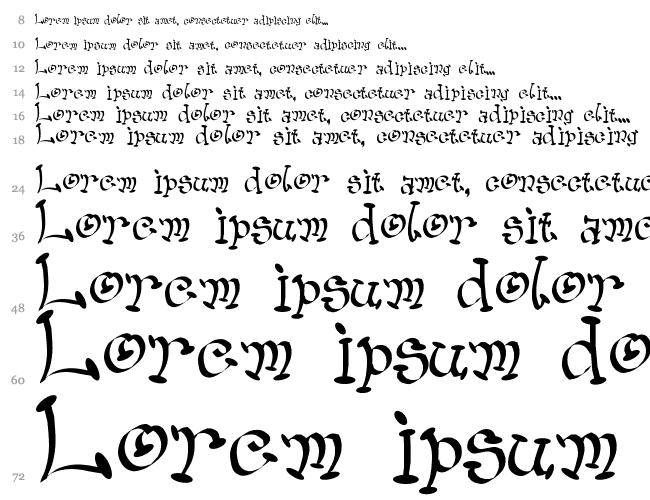 8 Lorem ipsum dolor sit amet, consectetuer adipiscing elit...
10 Lorem ipsum dolor sit amet, consectetuer adipiscing elit...
12 Lorem ipsum dolor sit amet, consectetuer adipiscing elit...
14 Lorem ipsum dolor sit amet, consectetuer adipiscing elit...
16 Lorem ipsum dolor sit amet, consectetuer adipiscing elit...
18 Lorem ipsum dolor sit amet, consectetuer adipiscing
24 Lorem ipsum dolor sit amet, consectetue
36 Lorem ipsum dolor sit ame
48 Lorem ipsum dolor
60 Lorem ipsum do
72 Lorem ipsum